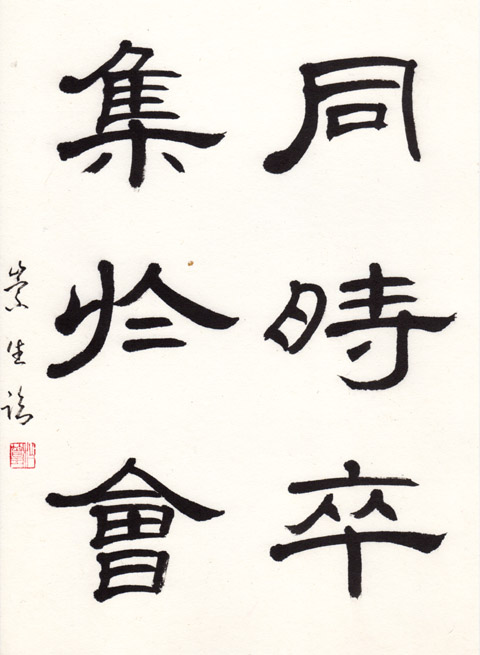 同時卒
集於會
崇生臨